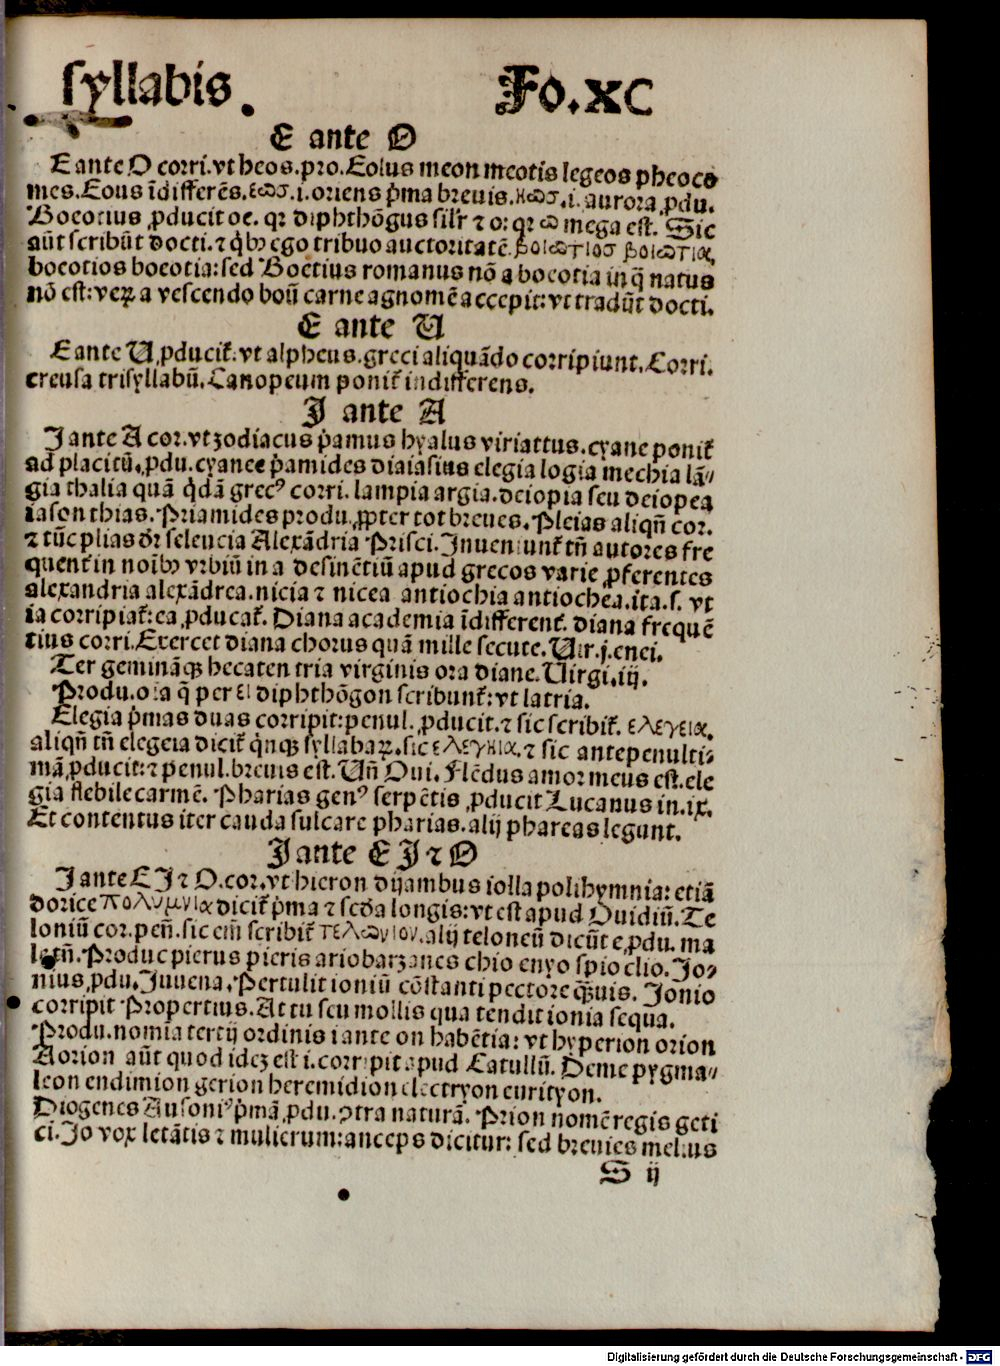 syllabis. Fo.XC
E ante O
E ante O corri. vt heos. pro. Eolus meon meotis legeos pheoco
mes. Eous īdifferēs. εωσ. i. oriens ṗma breuis. ηωσ. i. aurora, ꝓdu.
Boeotius ꝓducit oe. qr diphthōgus silr ⁊ o: qr ω mega est. Sic
aūt scribūt docti. ⁊ q̇bꝫ ego tribuo auctoritatē. βοιωτιοσ βοιωτια,
boeotios boeotia: sed Boetius romanus nō a boeotia in q̄ natus
nō est: veꝝ a vescendo boū carne agnomē accepit: vt tradūt docti.
E ante U
E ante U, ꝓducit᷑: vt alpheus. greci aliquādo corripiunt. Corri.
creusa trisyllabū. Canopeum ponit᷑ indifferens.
I ante A
I ante A cor. vt zodiacus ṗamus hyalus viriattus. cyane ponit᷑
ad placitū, ꝓdu. cyanee ṗamides diaiasius elegia logia mechia lā⸗
gia thalia quā q̇dā grecꝰ corri. lampia argia. deiopia seu deiopea
iason thias. Priamides produ. ꝓpter tot breues. Pleias aliqn̄ cor.
⁊ tūc plias dr̄ seleucia Alexādria Prisci. Inueniunt᷑ tn̄ autores fre
quent᷑ in noībꝫ vrbiū in a desinētiū apud grecos varie ꝓferentes
alexandria alexādrea. nicia ⁊ nicea antiochia antiochea. ita. s. vt
ia corripiat᷑: ea, ꝓducat᷑. Diana academia īdifferent᷑. diana frequē
tius corri. Exercet diana chorus quā mille secute. Uir. j. enei.
Ter gemināqꝫ hecaten tria virginis ora diane. Uirgi. iij.
Produ. oia q̄ per ει diphthōgon scribunt᷑: vt latria.
Elegia ṗmas duas corripit: penul. ꝓducit. ⁊ sic scribit᷑. ελεγεια.
aliqn̄ tn̄ elegeia dicit᷑ q̇nqꝫ syllabaꝝ. sic ελεγηια. ⁊ sic antepenulti⸗
mā, ꝓducit: ⁊ penul. breuis est. Un̄ Oui. Flēdus amor meus est. ele
gia flebile carmē. Pharias genꝰ serpētis ꝓducit Lucanus in. ix.
Et contentus iter cauda sulcare pharias. alij phareas legunt.
I ante E I ⁊ O
I ante E I ⁊ O. cor. vt hieron dijambus iolla polihymnia: etiā
dorice πολυμνια dicit᷑ ṗma ⁊ scd̄a longis: vt est apud Ouidiū. Te
loniū cor. pen̄. sic em̄ scribit᷑ τελωνιον. alij teloneū dicūt e, ꝓdu. ma
le tn̄. Produc pierus pieris ariobarzanes chio enyo spio clio. Io⸗
nius, ꝓdu. Iuuena. Pertulit ioniū cōstanti pectore qꝫuis. Ionio
corripit Propertius. At tu seu mollis qua tendit ionia sequa.
Produ. nomia tertij ordinis i ante on habētia: vt hyperion orion
Aorion aūt quod idez est i. corripit apud Catullū. Deme pygma⸗
leon endimion gerion heremidion electryon eurityon.
Diogenes Ausoniꝰ ṗmā, ꝓdu. ↄtra naturā. Prion nomē regis geti
ci. Io vox letātis ⁊ mulierum: anceps dicitur: sed breuies melius
S ij
Digitalisierung gefördert durch die Deutsche Forschungsgemeinschaft - DFG